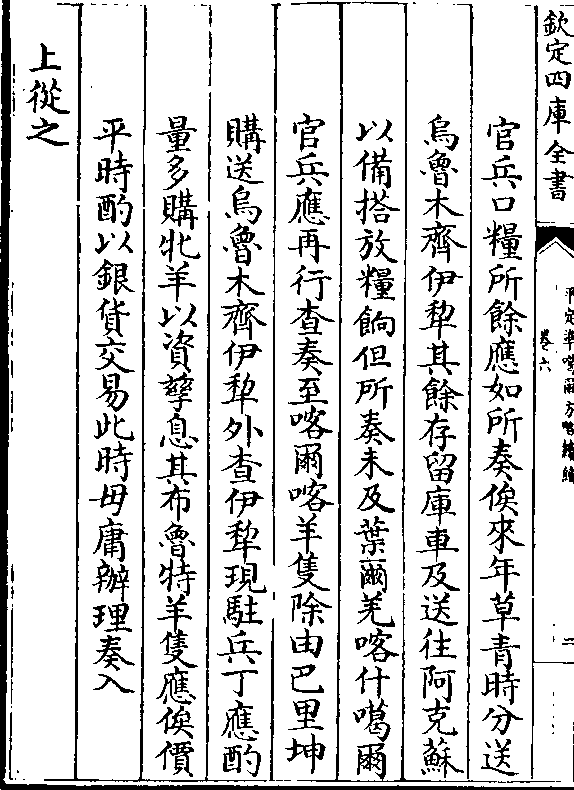 欽定四庫全書
平定準噶爾方略續編
卷六
二
官兵口糧所餘應如所奏俟來年草青時分送
烏魯木齊伊犂其餘存留庫車及送往阿克蘇
以備搭放糧餉但所奏未及葉爾羌喀什噶爾
官兵應再行查奏至喀爾喀羊隻除由巴里坤
購送烏魯木齊伊犂外查伊犂現駐兵丁應酌
量多購牝羊以資孳息其布魯特羊隻應俟價
平時酌以銀貨交易此時毋庸辦理奏入
上從之